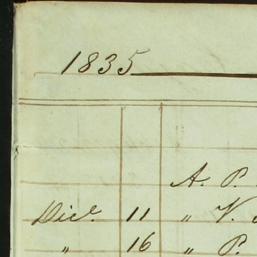 1835
A. P.
Dice. 11 " V.
" 16 " P.